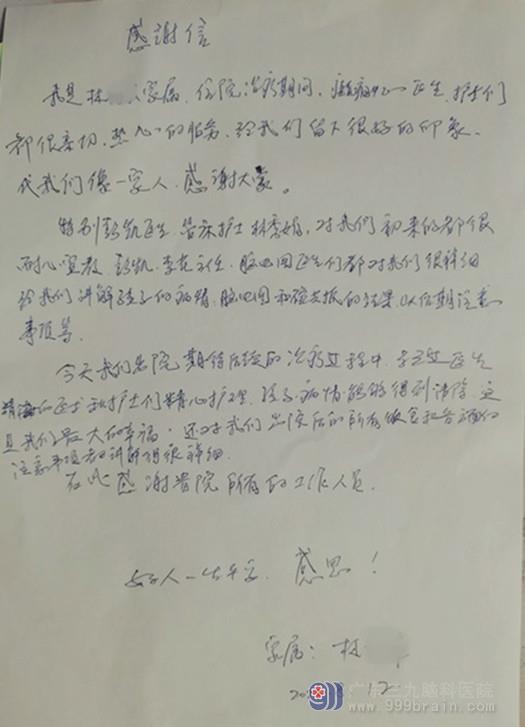 感谢信
我是林 家属，住院治疗期间，癫痫中心医生、护士们
都很亲切、热心的服务，给我们留下很好的印象。
代我们像一家人，感谢大家。
特别彭凯医生、管床护士林秀娟，对我们初来的都很
耐心宣教，彭凯、李花主任、脑电图医生们都对我们很详细
给我们讲解孩子的病情，脑电图和磁共振的结果，以后期注意
事项等
今天我们出院，期待后续的治疗过程中，
医生和护士们精心护理，孩子病情能够得到清除，这
是我们最大的幸福，还对我们出院后的所有饮食和
注意事项都讲解得很详细。
在此感谢贵院所有的工作人员。
好人一生平安，感恩！
家属：林
20 12
广东三九脑科医院
www.999brain.com